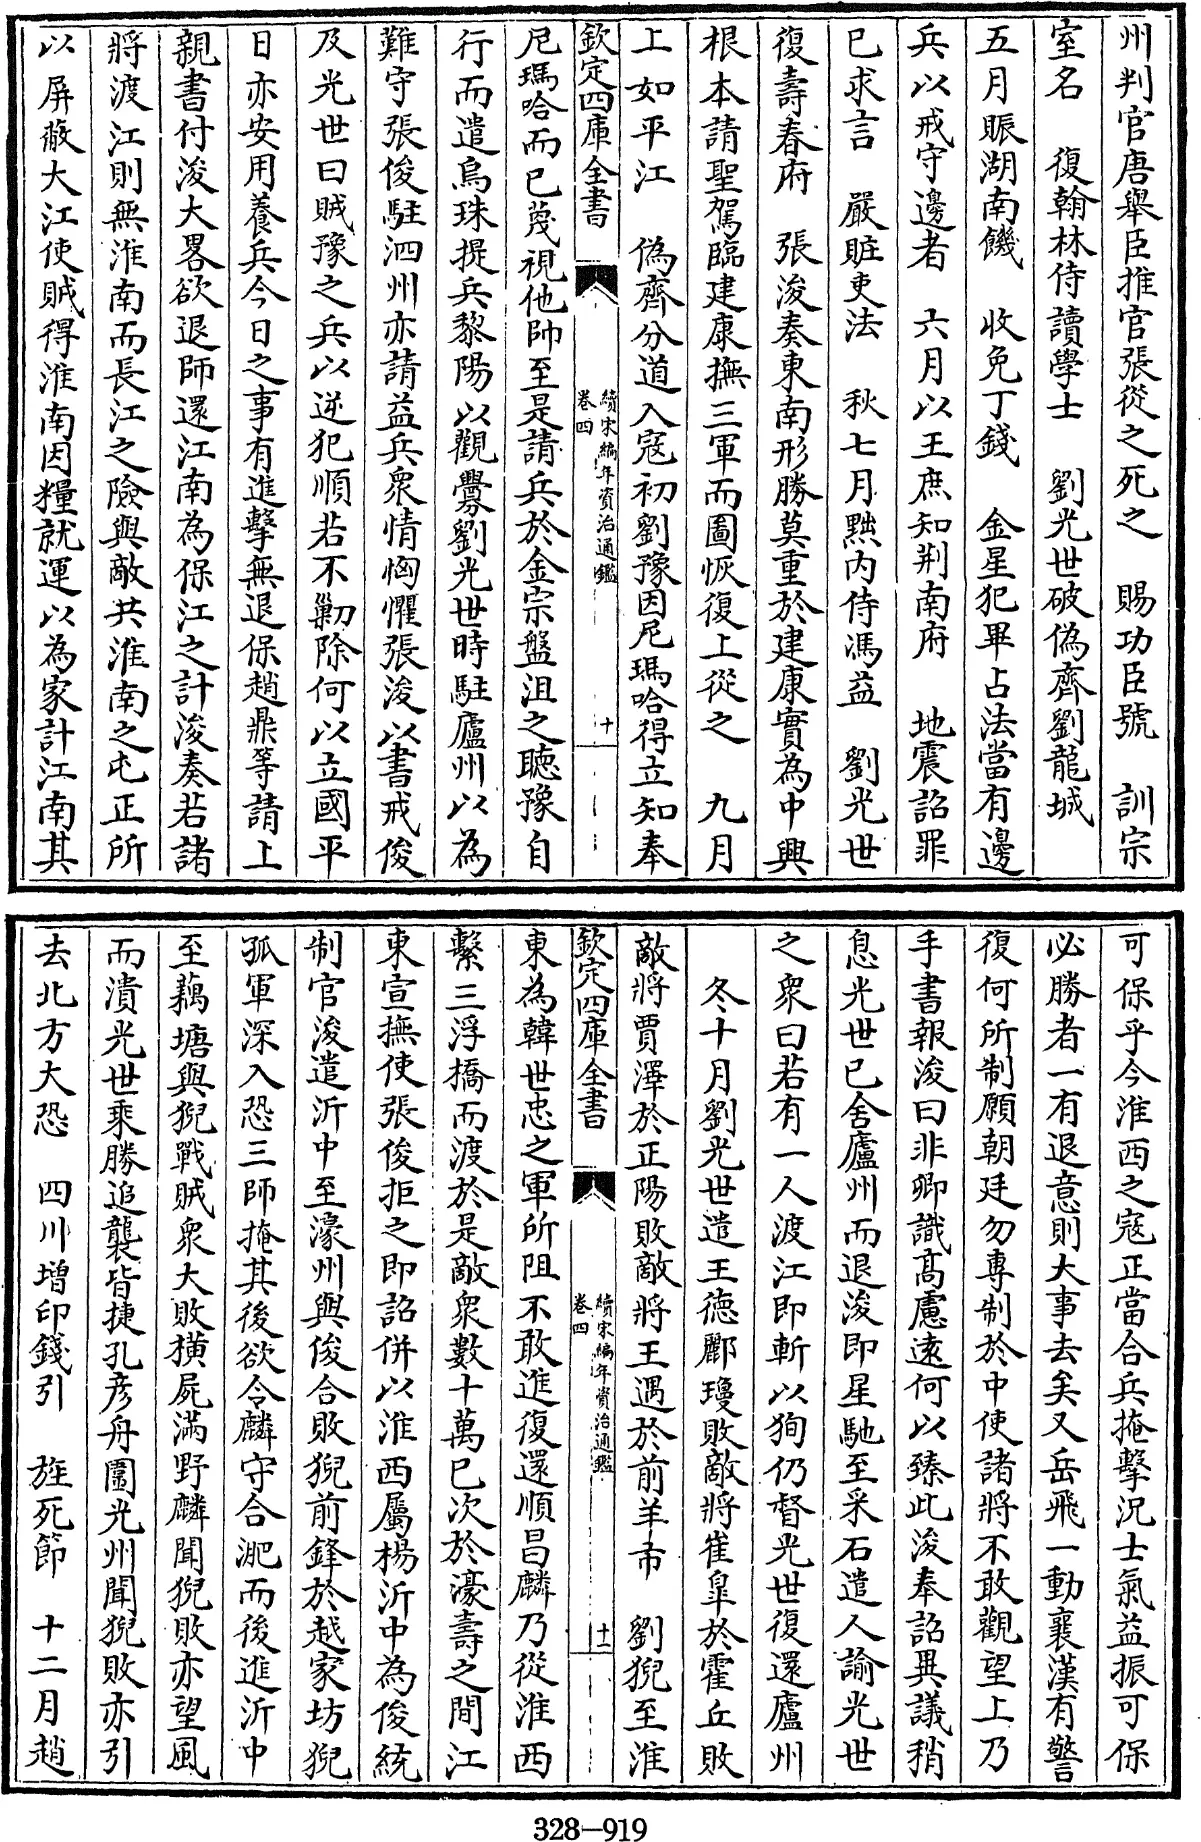 州判官唐舉臣推官張從之死之　賜功臣號　訓宗
室名　復翰林侍讀學士　劉光世破偽齊劉龍城
五月賑湖南饑　收免丁錢　金星犯畢占法當有邊
兵以戒守邊者　六月以王庶知荆南府　地震詔罪
已求言　嚴賍吏法　秋七月黜内侍馮益　劉光世
復壽春府　張浚奏東南形勝莫重於建康實為中興
根本請聖駕臨建康撫三軍而圖恢復上從之　九月
上如平江　偽齊分道入寇初劉豫因尼瑪哈得立知奉
欽定四庫全書
續宋編年資治通鑑
卷四
十
尼瑪哈而已蔑視他帥至是請兵於金宗盤沮之聽豫自
行而遣烏珠提兵黎陽以觀釁劉光世時駐廬州以為
難守張俊駐泗州亦請益兵衆情恟懼張浚以書戒俊
及光世曰賊豫之兵以逆犯順若不勦除何以立國平
日亦安用養兵今日之事有進擊無退保趙鼎等請上
親書付浚大畧欲退師還江南為保江之計浚奏若諸
將渡江則無淮南而長江之險與敵共淮南之屯正所
以屏蔽大江使賊得淮南因糧就運以為家計江南其
可保乎今淮西之寇正當合兵掩擊況士氣益振可保
必勝者一有退意則大事去矣又岳飛一動襄漢有警
復何所制願朝廷勿專制於中使諸將不敢觀望上乃
手書報浚曰非卿識高慮遠何以臻此浚奉詔異議稍
息光世已舍廬州而退浚即星馳至采石遣人諭光世
之衆曰若有一人渡江即斬以狥仍督光世復還廬州
冬十月劉光世遣王德酈瓊敗敵將崔臯於霍丘敗
敵將賈澤於正陽敗敵將王遇於前羊市　劉猊至淮
欽定四庫全書
續宋編年資治通鑑
卷四
十一
東為韓世忠之軍所阻不敢進復還順昌麟乃從淮西
繫三浮橋而渡於是敵衆數十萬已次於濠壽之間江
東宣撫使張俊拒之即詔併以淮西屬楊沂中為俊統
制官浚遣沂中至濠州與俊合敗猊前鋒於越家坊猊
孤軍深入恐三師掩其後欲令麟守合淝而後進沂中
至藕塘與猊戰賊衆大敗橫屍滿野麟聞猊敗亦望風
而潰光世乘勝追襲皆捷孔彦舟圍光州聞猊敗亦引
去北方大恐　四川增印錢引　旌死節　十二月趙
328—919